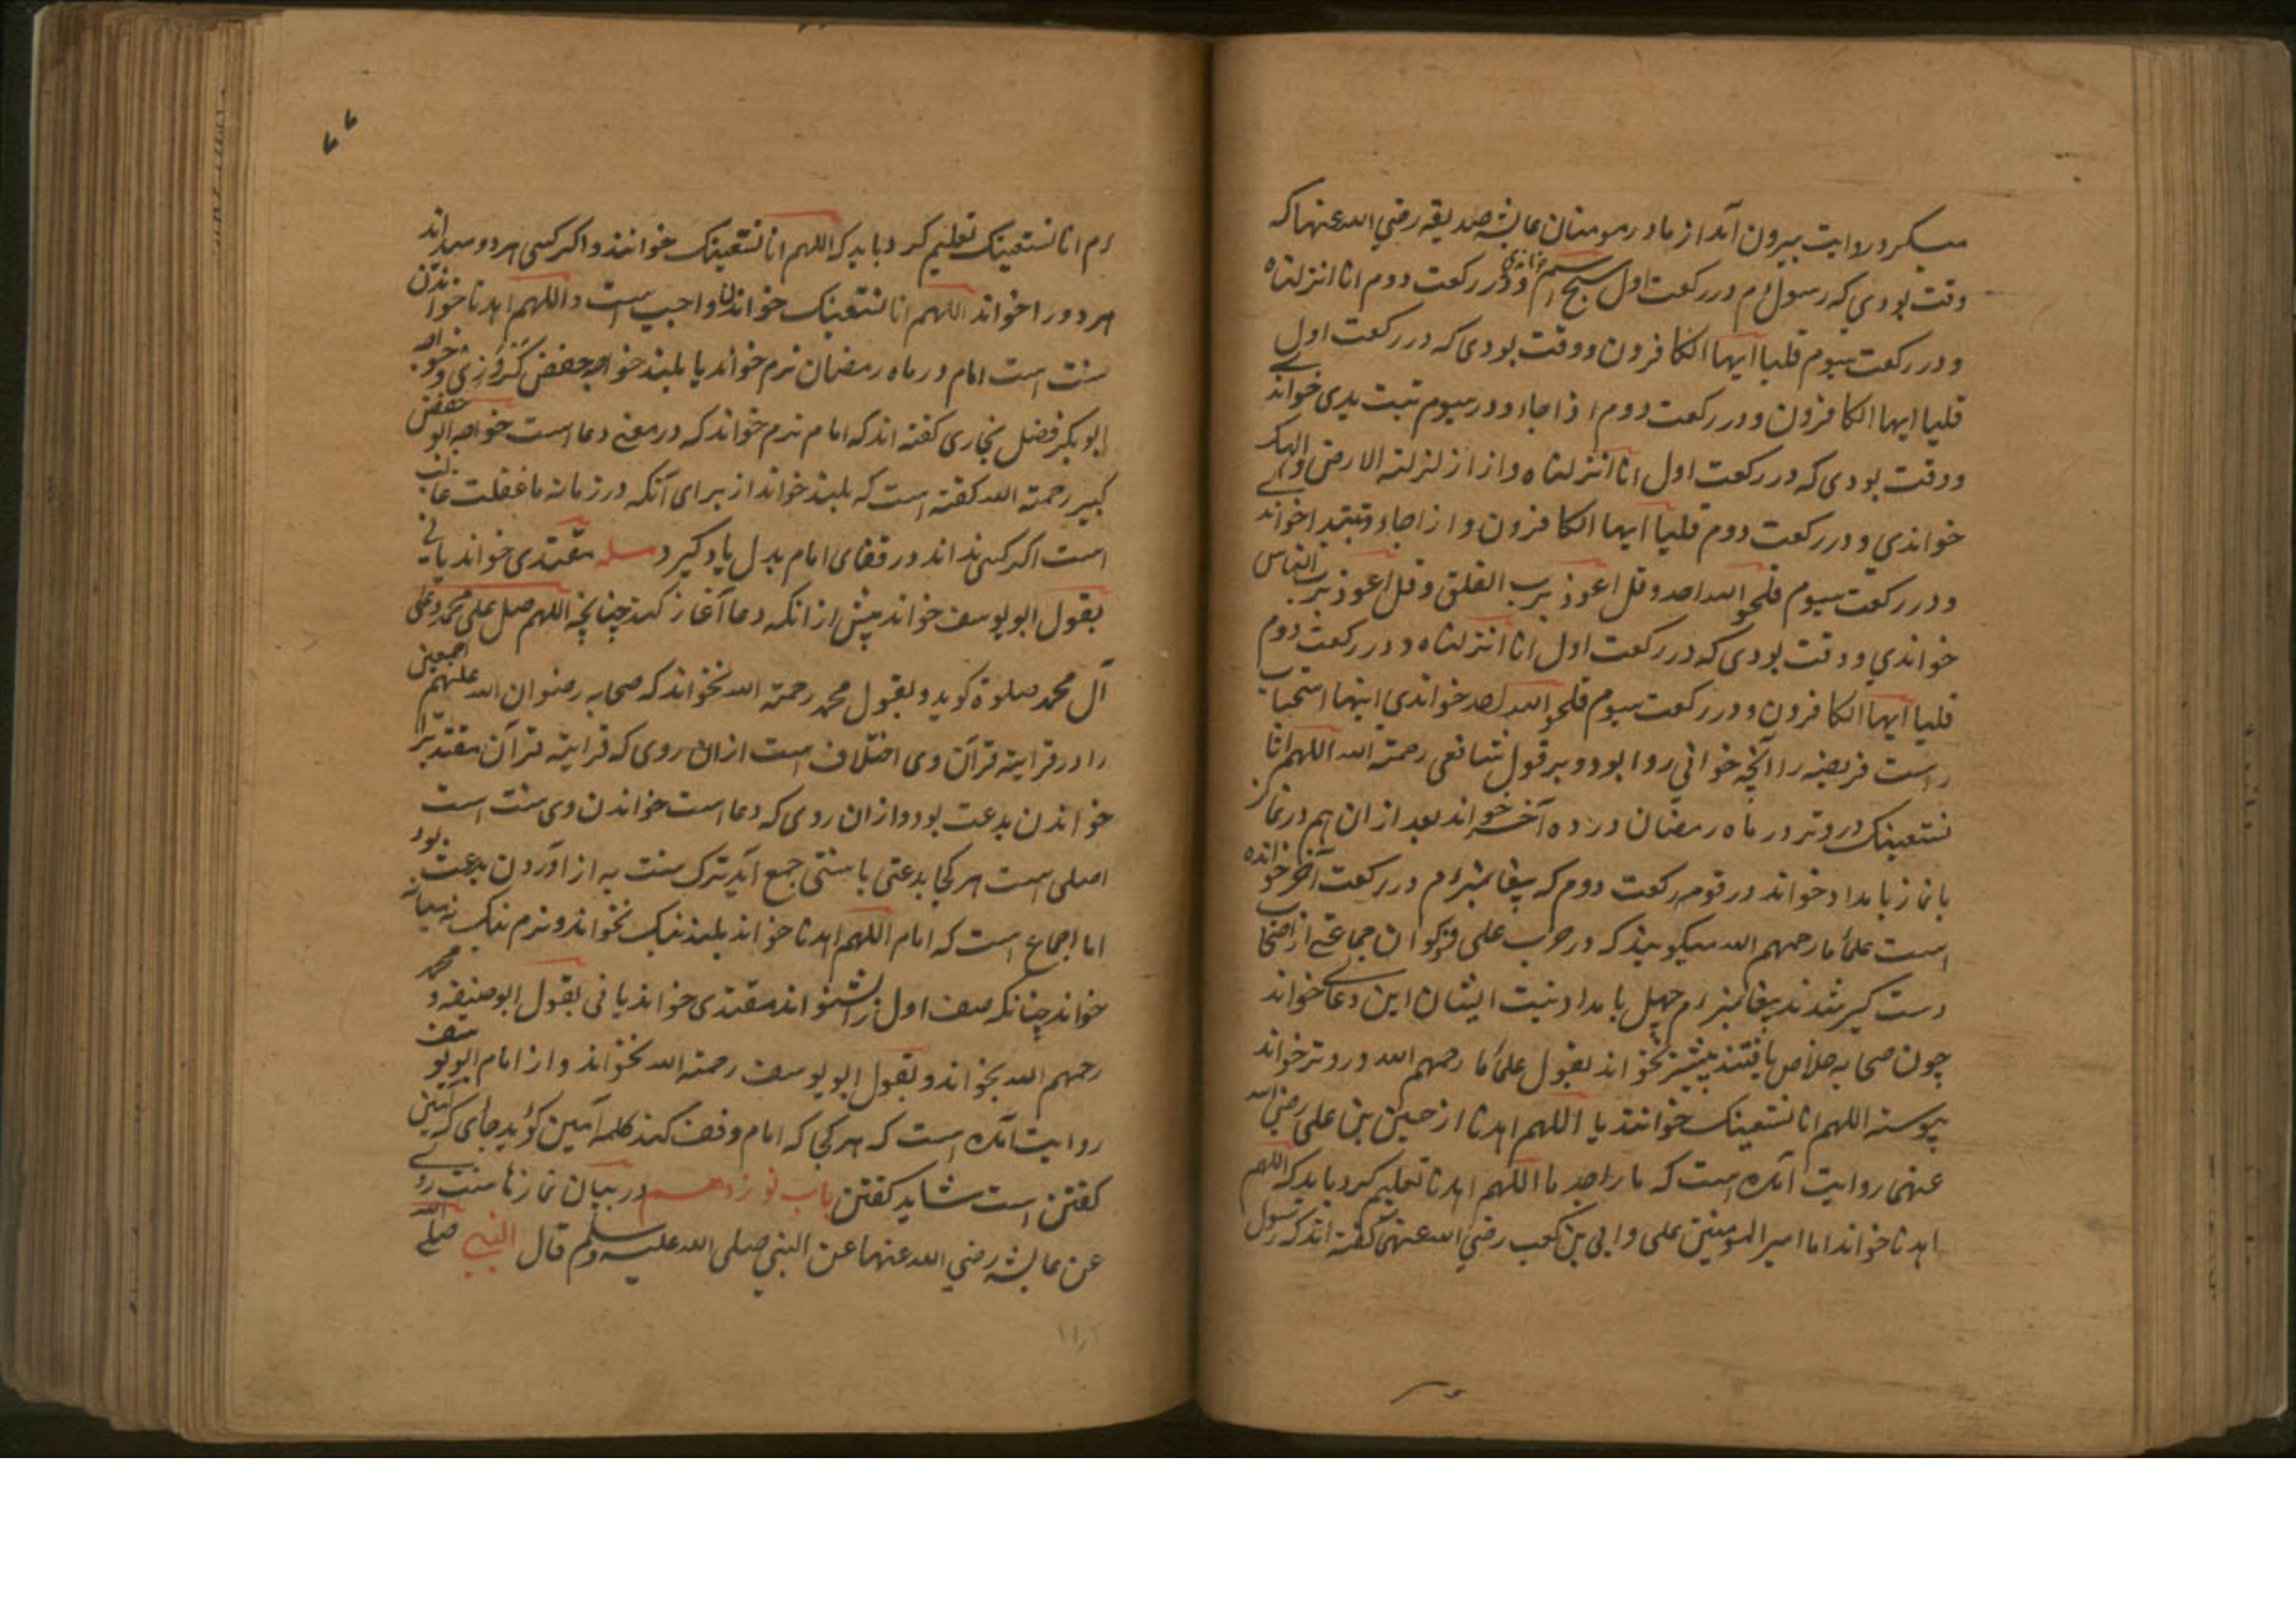 میکرد و روایت بیرون آمد از مادر مومنان عایشه صدیقه رضی الله عنها که
وقت بودی که رسول م در رکعت اول سبح اسم خواندی و در رکعت دوم انا انزلناه
و در رکعت سیوم قلیا ایها الکافرون و وقت بودی که در رکعت اول
قلیا ایها الکافرون و در رکعت دوم اذا جاء و در سیوم تبت یدی خواندے
و وقت بودی که در رکعت اول انا انزلناه و از ازلزلته الارض و الهکم
خواندی و در رکعت دوم قلیا ایها الکافرون و از اجاء و تبتیدا خواندے
و در رکعت سیوم قلهو الله احد و قل اعوذ برب الفلق و قل اعوذ برب الناس
خواندی و وقت بودی که در رکعت اول انا انزلناه و در رکعت دوم
قلیا ایها الکافرون و در رکعت سیوم قلهو الله احد خواندی اینها استحباب
راست فریضه را آنچه خوانی روا بود و بر قول شافعی رحمته الله اللهم انا
نستعینک در وتر در ماه رمضان در ده آخر خواند بعد از ان هم در نماز
با نماز بامداد خواند در قومه رکعت دوم که پیغامبر م در رکعت آخر خوانده
است علما ما رحمهم الله میگویند که در حرب علی و ذکوان جماعتے از اصحاب
دست گیر شدند پیغامبر م چهل بامداد بنیت ایشان این دعا خواندے
چون صحابه خلاص یافتند بیشتر نخواند بقول علما ما رحمهم الله در وتر خواند
پیوسته اللهم انا نستعینک خوانند یا اللهم اهدنا از حسین بن علی رضی الله
عنهی روایت آمده است که ما را جد ما اللهم اهدنا تعلیم کرد باید که اللهم
اهدنا خواند اما امیر المومنین علی و ابی بن کعب رضی الله عنهی گفته اند که رسول
م انا نستعینک تعلیم کرد باید که اللهم انا نستعینک خوانند و اگر کسی هر دو میداند
هر دو را خواند اللهم انا نستعینک خواندن واجب است و اللهم اهدنا خواندن
سنت است امام در ماه رمضان نرم خواند یا بلند خواجه حفص و خواجه
ابوبکر فضل بخاری گفته اند که امام نرم خواند که در معنے دعا است خواجه ابو حفص
کبیر رحمته الله گفته است که بلند خواند از برای آنکه در زمانه ما غفلت غالب
است اگر کسی نداند در قفای امام بدل یاد گیرد مسله مقتدی خواند یا نی
بقول ابو یوسف خواند پیش از انکه دعا آغاز کند چنانچه اللهم صل علی محمد و علی
آل محمد صلوة گوید و بقول محمد رحمته الله نخواند که صحابه رضوان الله علیهم اجمعین
را در قرایته قرآن وی اختلاف است ازان روی که قرایته قرآن مقتدیرا
خواندن بدعت بود و ازان روی که دعا است خواندن وی سنت است
اصلی است هر کجا بدعتی با سنتی جمع آید ترک سنت به از آوردن بدعت بود
اما اجماع است که امام اللهم اهدنا خواند بلند نیک نخواند و نرم نیک نه میانه
خواند چنانکه صف اول را شنواند مقتدی خواند یا نی بقول ابو حنیفه و محمد
رحمهم الله بخواند و بقول ابو یوسف رحمته الله نخواند و از امام ابو یوسف
روایت آمده است که هر کجا که امام وقف کند کلمه آمین گوید جای که آمین
گفتن است شاید گفتن باب نوزدهم در بیان نمازها سنت روے
عن عایشه رضی الله عنهما عن النبی صلی الله علیه وسلم قال النبی صلے الله